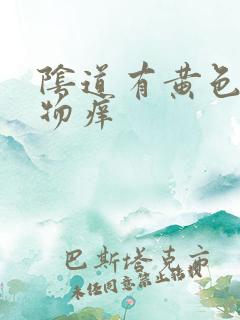 陰道有黄色
物痒
巴斯塔克亩
未经同意禁止转载